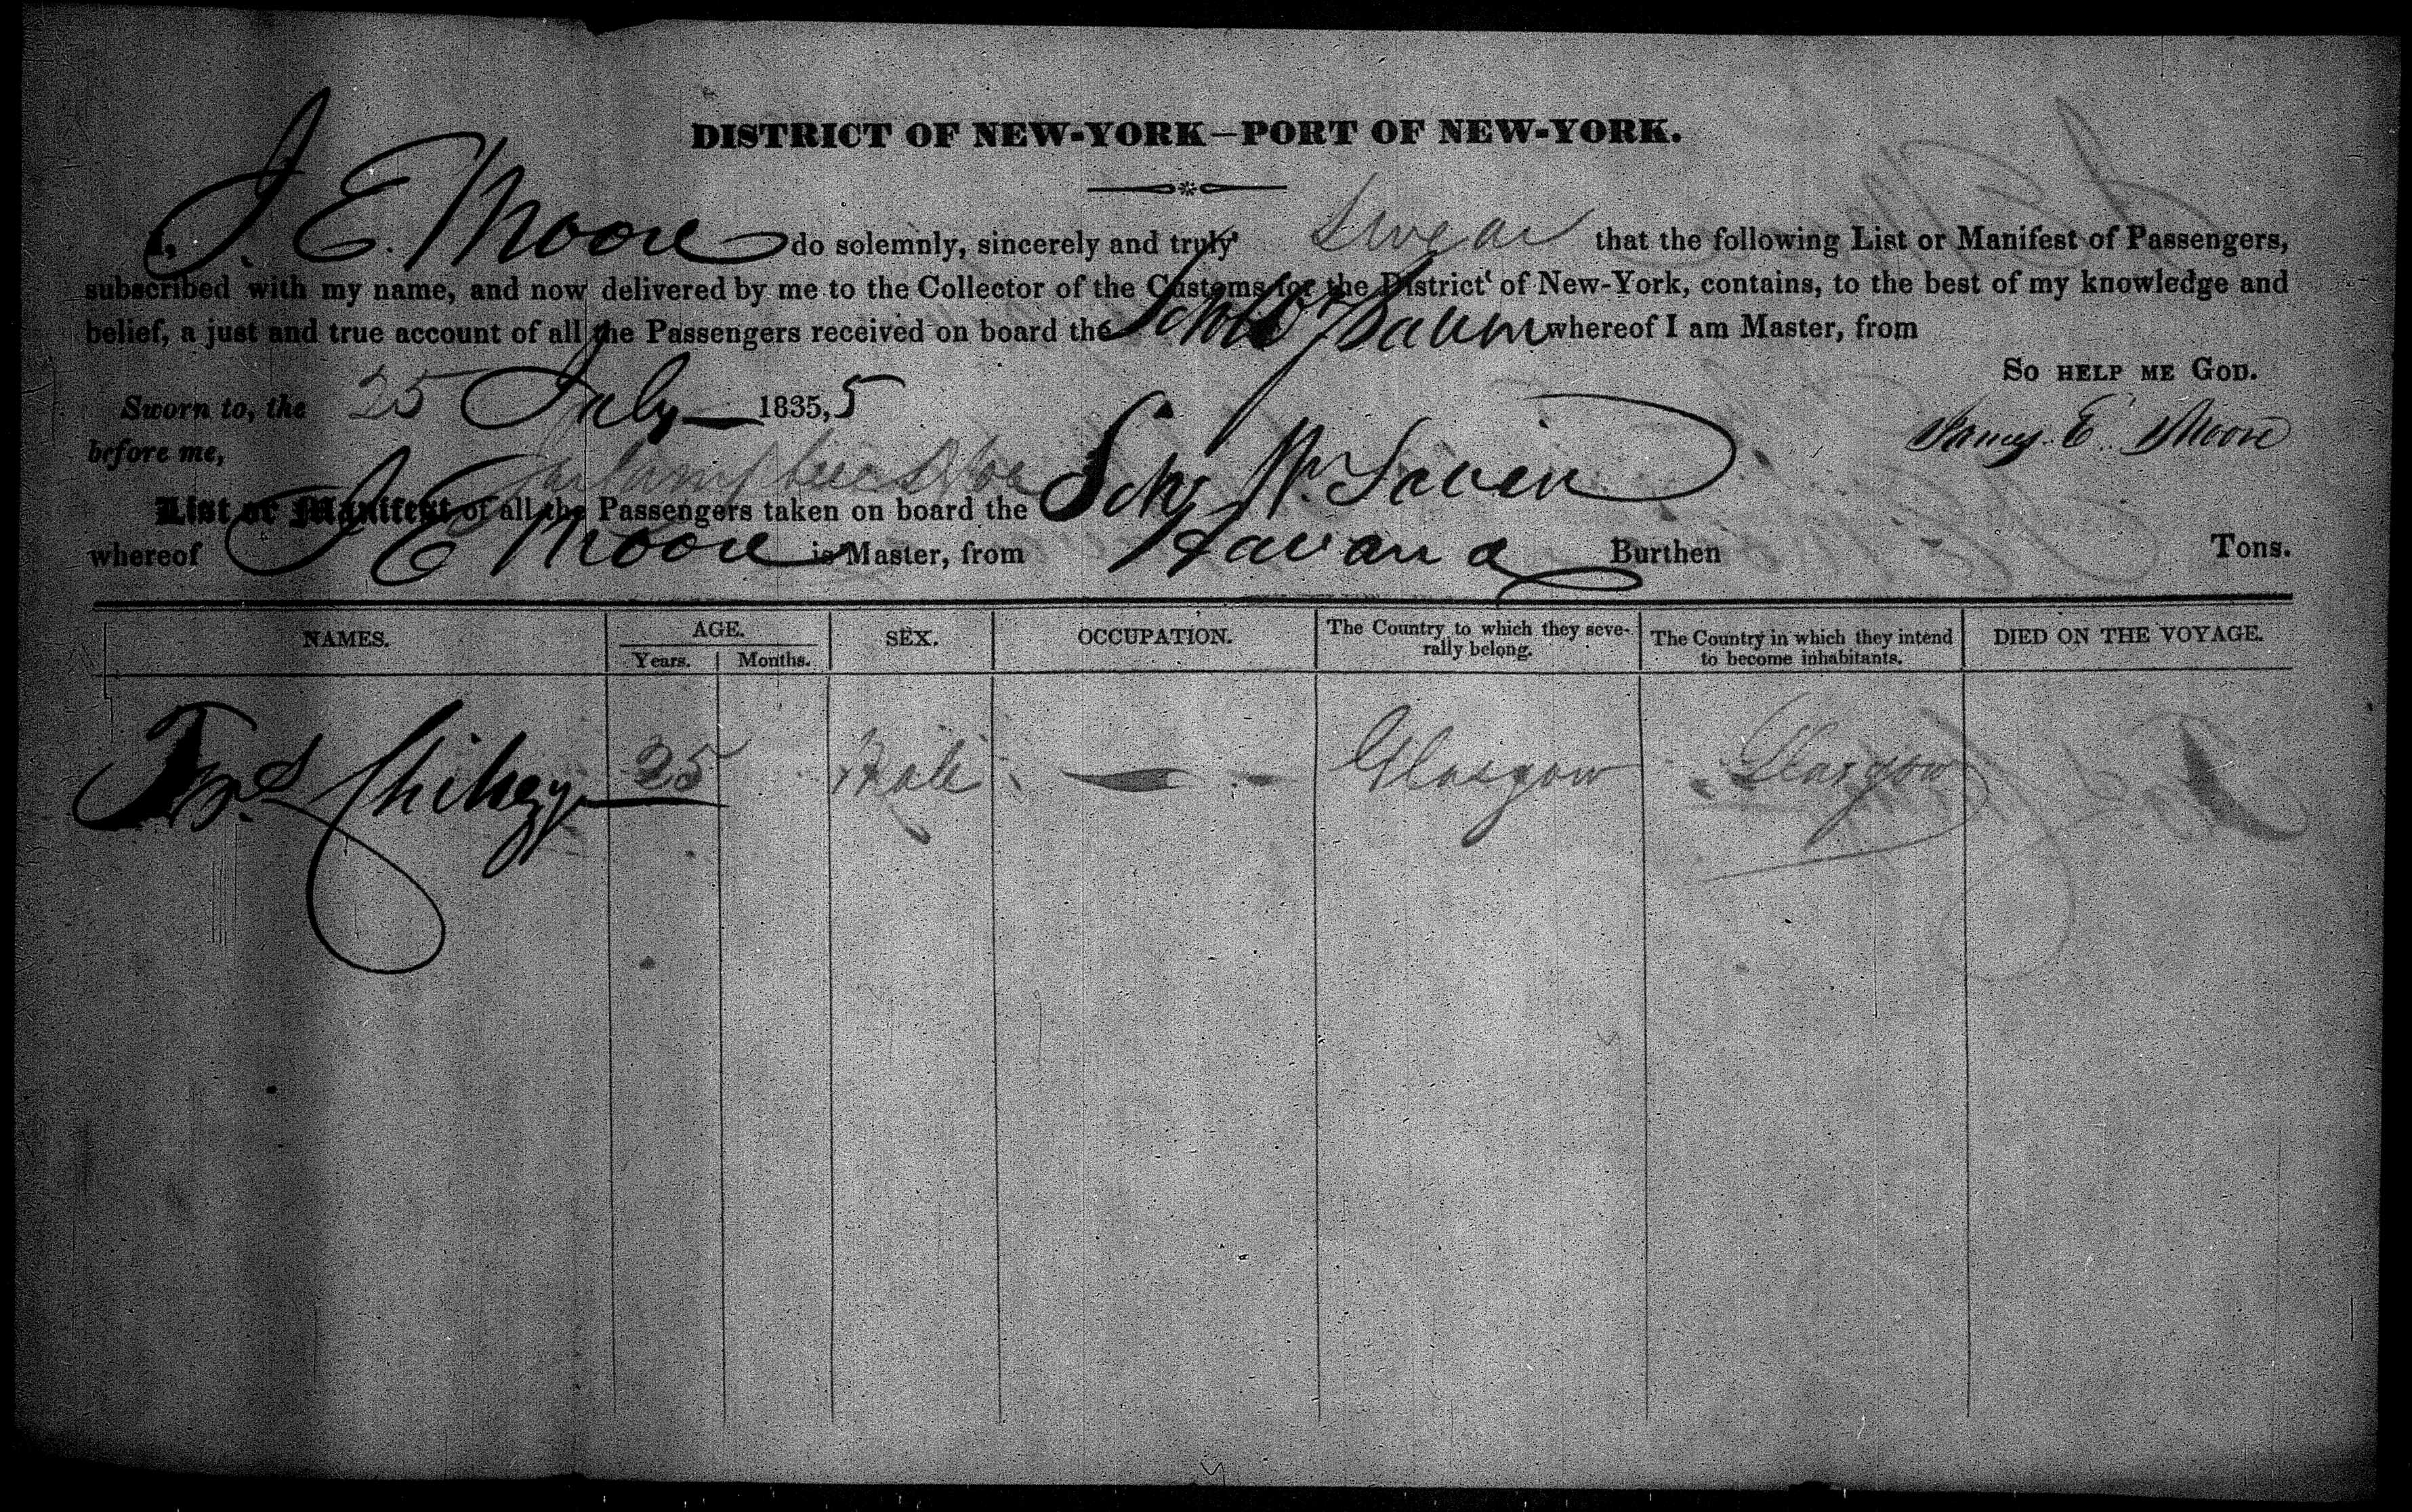 DISTRICT OF NEW-YORK—PORT OF NEW-YORK.
I, J. E. Moore do solemnly, sincerely and truly swear that the following List or Manifest of Passengers,
subscribed with my name, and now delivered by me to the Collector of the Customs for the District of New-York, contains, to the best of my knowledge and
belief, a just and true account of all the Passengers received on board the whereof I am Master, from
So HELP ME GOD.
Sworn to, the 25 July 1835,5
James E Moore
before me,
List or Manifest of all the Passengers taken on board the Schr
whereof J E Moore is Master, from Havana Burthen Tons.
NAMES. AGE. SEX. OCCUPATION. The Country to which they severally belong. The Country in which they intend to become inhabitants. DIED ON THE VOYAGE.
Years. Months.
25 Male Glasgow Glasgow